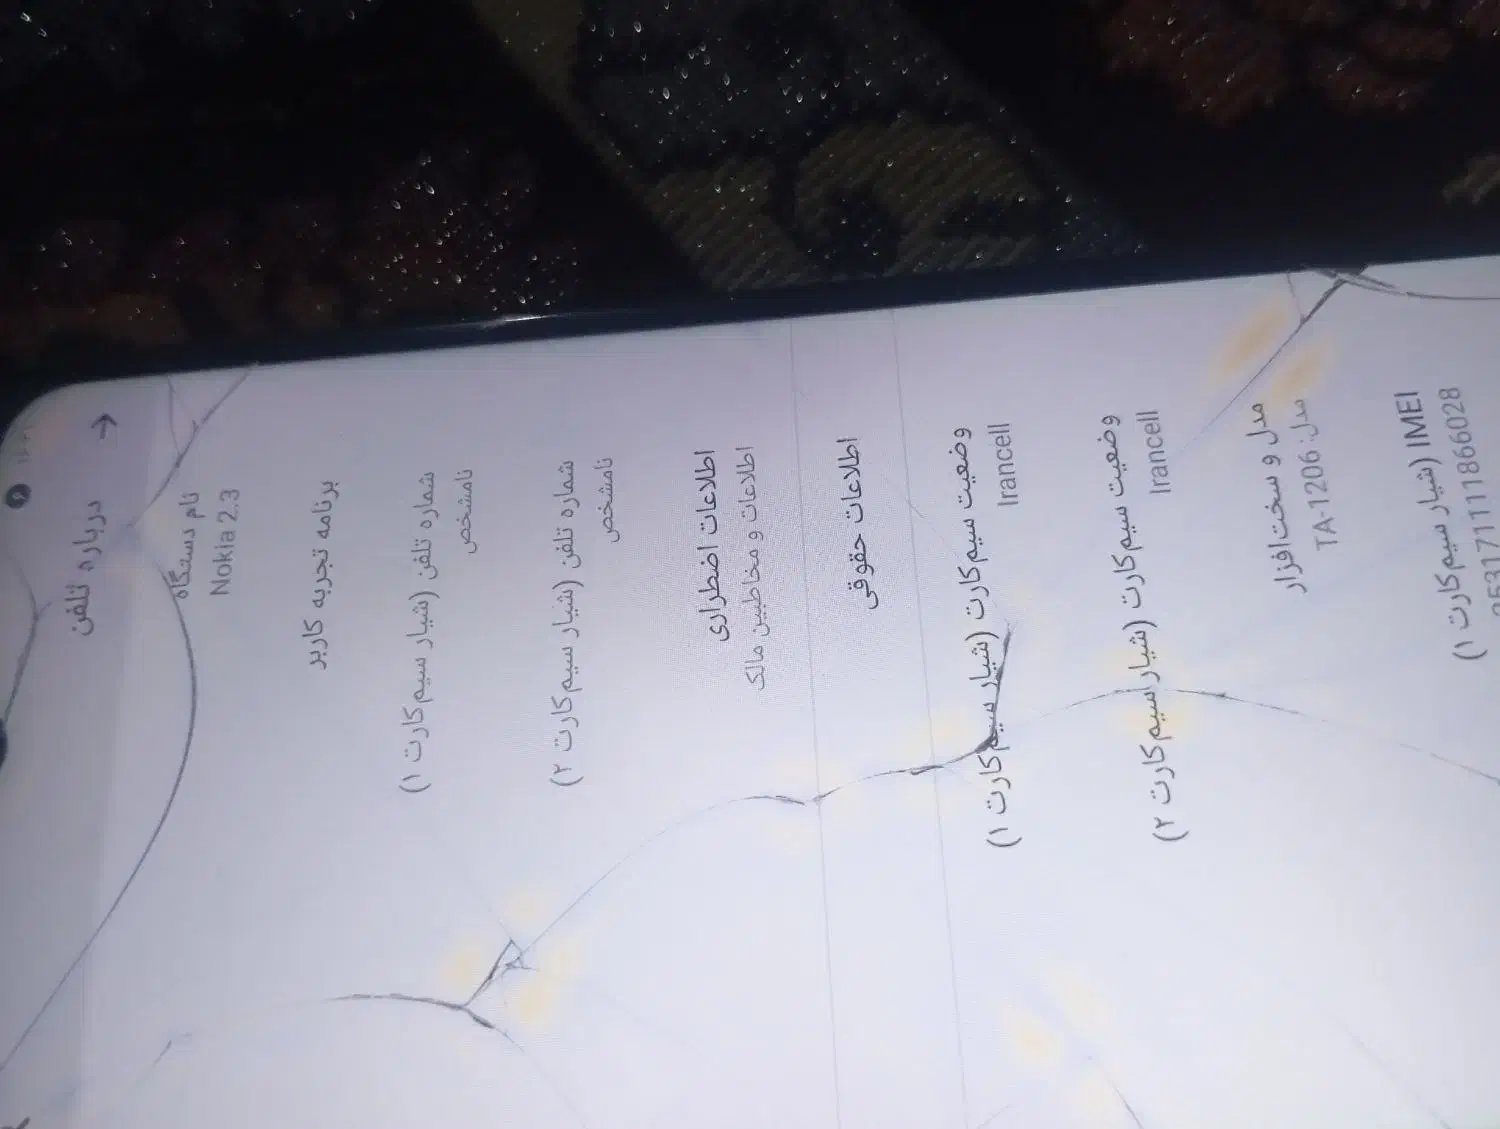 درباره تلفن
نام دستگاه
Nokia 2.3
برنامه تجربه کاربر
شماره تلفن (شیار سیم‌کارت ۱)
نامشخص
شماره تلفن (شیار سیم‌کارت ۲)
نامشخص
اطلاعات اضطراری
اطلاعات و مخاطبین مالک
اطلاعات حقوقی
وضعیت سیم‌کارت (شیار سیم‌کارت ۱)
Irancell
وضعیت سیم‌کارت (شیار سیم‌کارت ۲)
Irancell
مدل و سخت‌افزار
مدل: TA-1206
IMEI (شیار سیم‌کارت ۱)
353171111866028